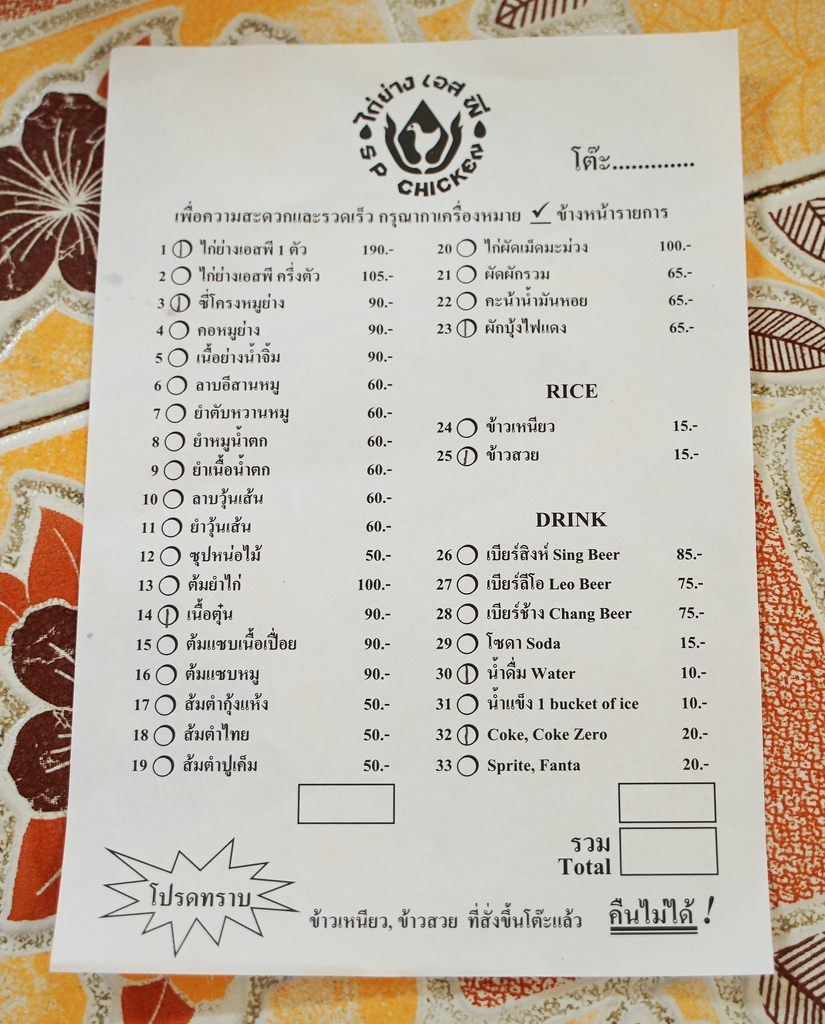 ไก่ย่าง เอส พี
SP CHICKEN
โต๊ะ.............
เพื่อความสะดวกและรวดเร็ว กรุณากาเครื่องหมาย ✓ ข้างหน้ารายการ
1 ไก่ย่างเอสพี 1 ตัว 190.-
2 ไก่ย่างเอสพี ครึ่งตัว 105.-
3 ซี่โครงหมูย่าง 90.-
4 คอหมูย่าง 90.-
5 เนื้อย่างน้ำจิ้ม 90.-
6 ลาบอีสานหมู 60.-
7 ยำตับหวานหมู 60.-
8 ยำหมูน้ำตก 60.-
9 ยำเนื้อน้ำตก 60.-
10 ลาบวุ้นเส้น 60.-
11 ยำวุ้นเส้น 60.-
12 ซุปหน่อไม้ 50.-
13 ต้มยำไก่ 100.-
14 เนื้อตุ๋น 90.-
15 ต้มแซบเนื้อเปื่อย 90.-
16 ต้มแซบหมู 90.-
17 ส้มตำกุ้งแห้ง 50.-
18 ส้มตำไทย 50.-
19 ส้มตำปูเค็ม 50.-
20 ไก่ผัดเม็ดมะม่วง 100.-
21 ผัดผักรวม 65.-
22 คะน้าน้ำมันหอย 65.-
23 ผักบุ้งไฟแดง 65.-
RICE
24 ข้าวเหนียว 15.-
25 ข้าวสวย 15.-
DRINK
26 เบียร์สิงห์ Sing Beer 85.-
27 เบียร์ลีโอ Leo Beer 75.-
28 เบียร์ช้าง Chang Beer 75.-
29 โซดา Soda 15.-
30 น้ำดื่ม Water 10.-
31 น้ำแข็ง 1 bucket of ice 10.-
32 Coke, Coke Zero 20.-
33 Sprite, Fanta 20.-
รวม
Total
โปรดทราบ
ข้าวเหนียว, ข้าวสวย ที่สั่งขึ้นโต๊ะแล้ว คืนไม่ได้ !